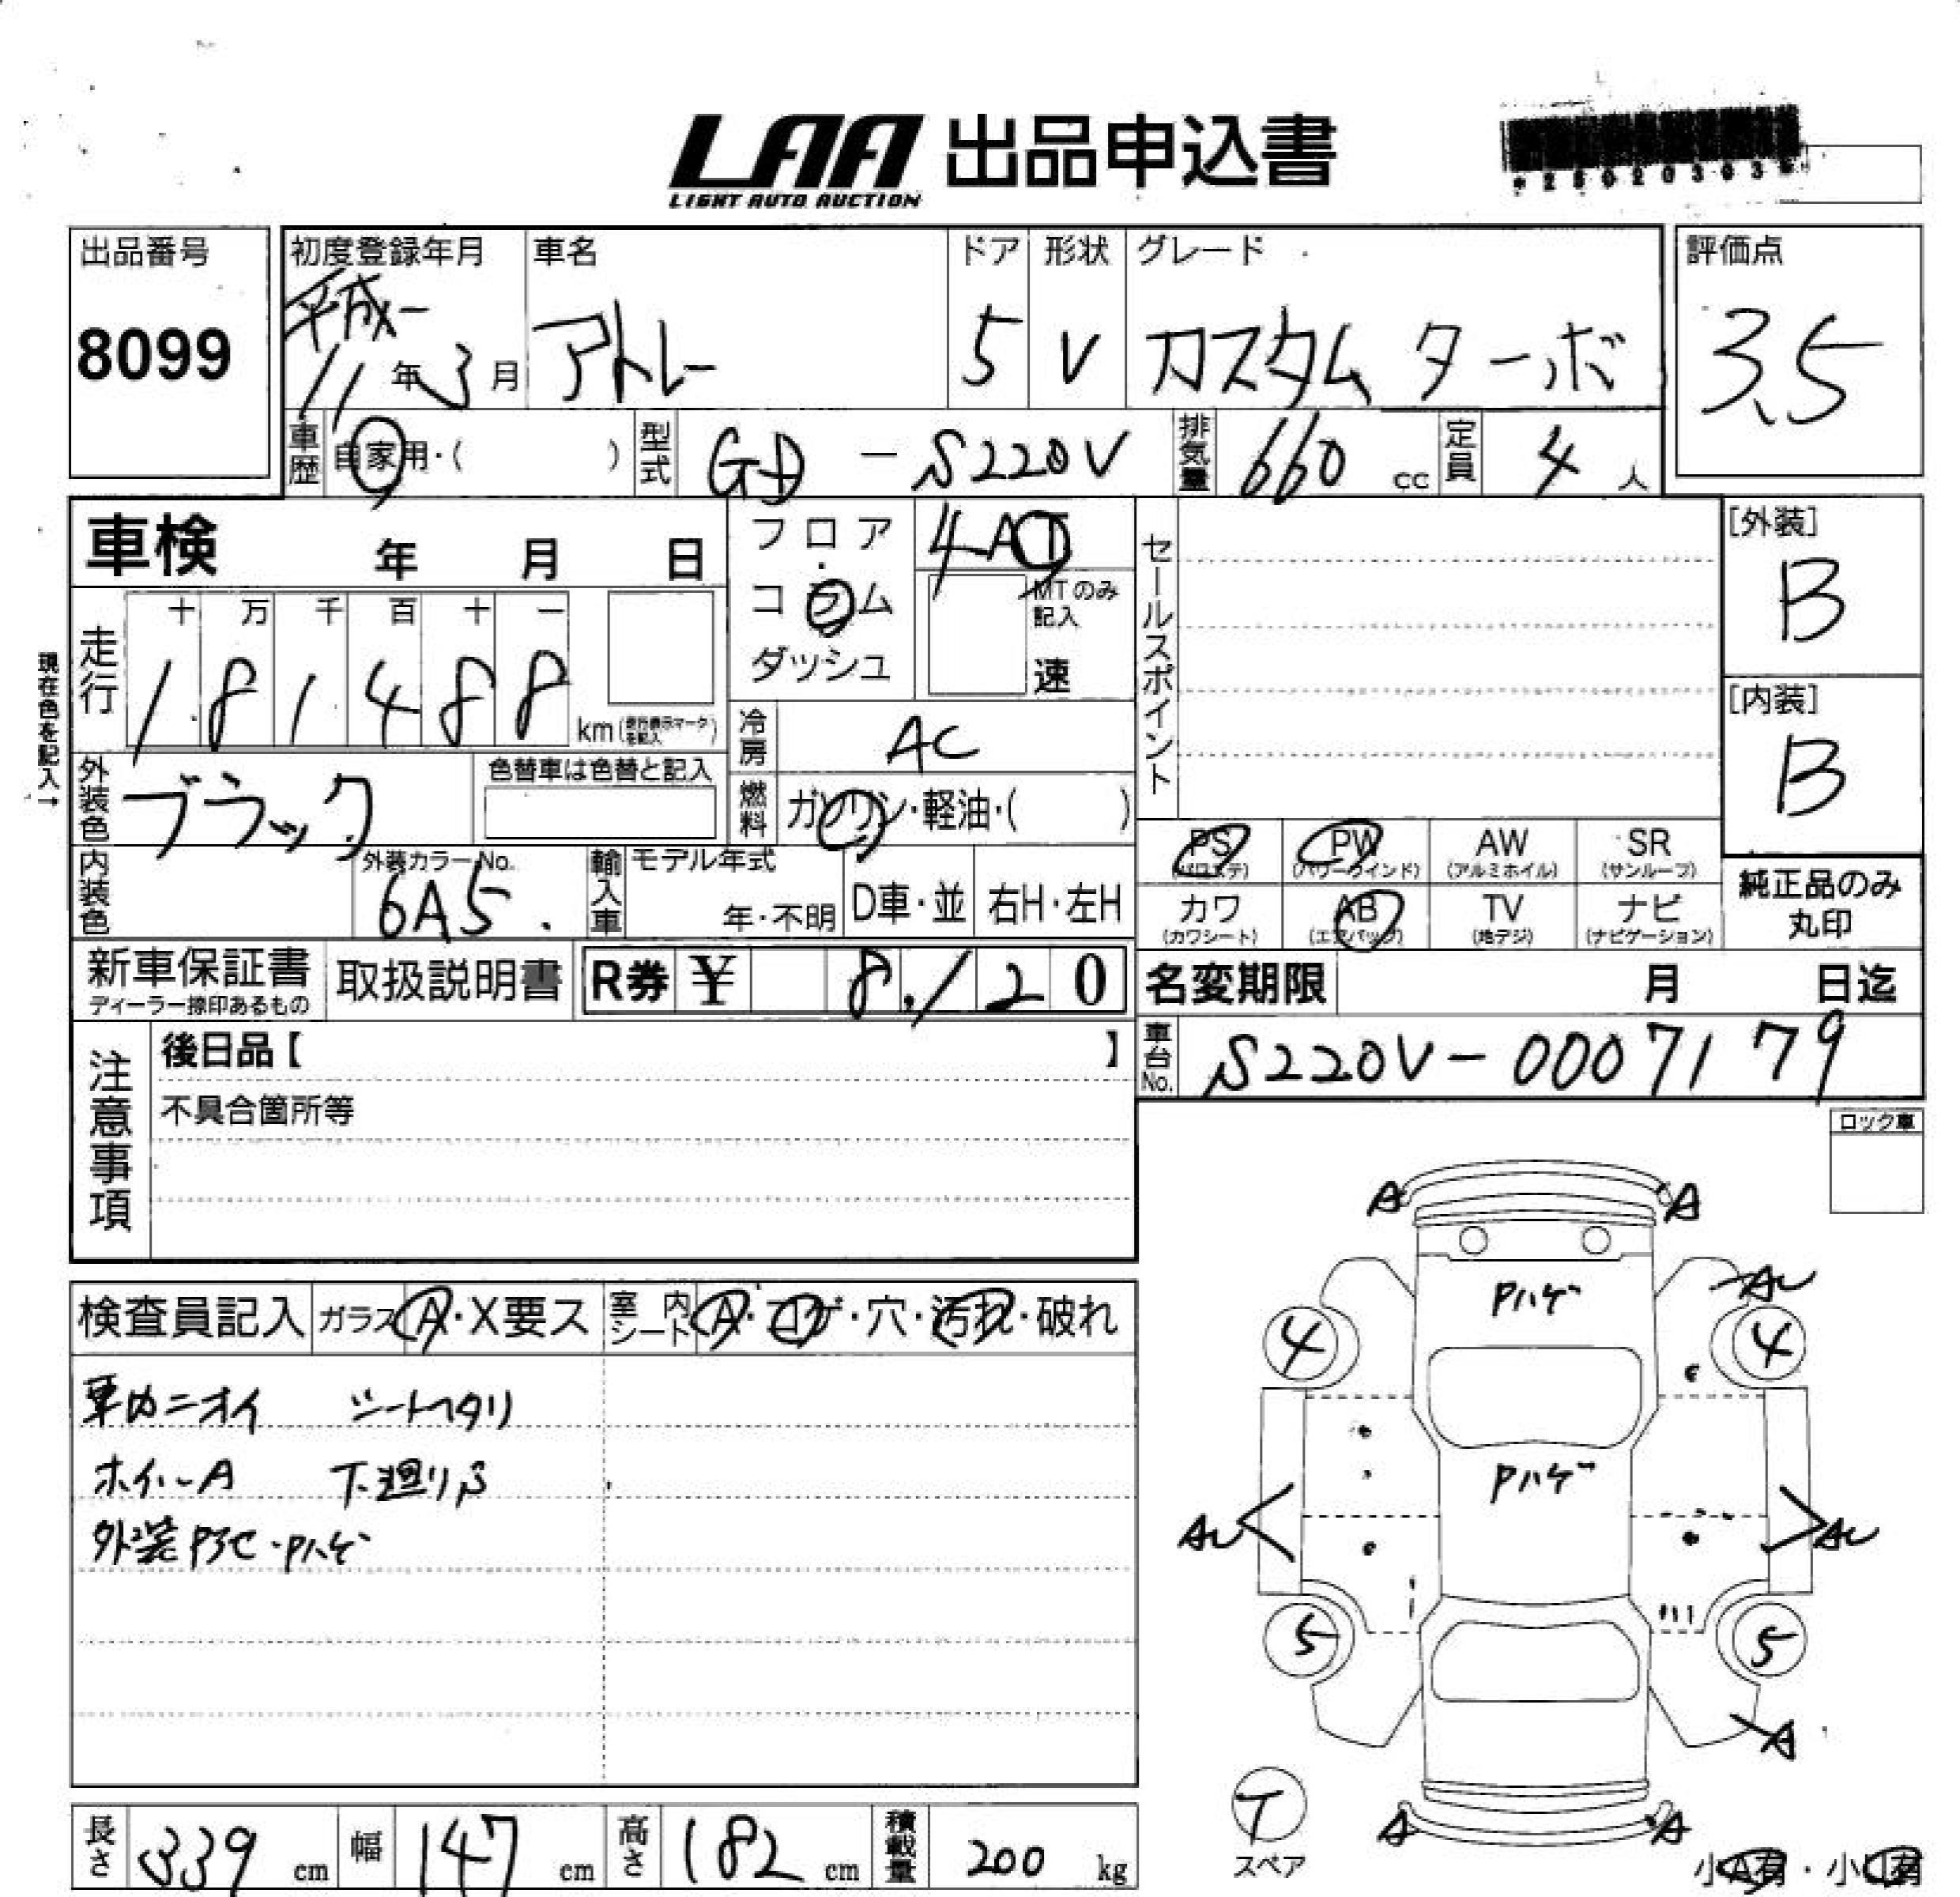 LAA 出品申込書
LIGHT AUTO AUCTION
出品番号
8099
初度登録年月
平成
11年3月
車名
アトレー
ドア
5
形状
V
グレード
カスタム ターボ
評価点
3.5
車歴 自家用・( )
型式 GD - S220V
排気量 660 cc
定員 4 人
車検 年 月 日
フロア・コラム
ダッシュ
4AT
MTのみ記入
速
セールスポイント
[外装]
B
[内装]
B
現在色を記入→
走行
十 万 千 百 十 一
1 8 1 4 8 8 km(走行表示マークを記入)
冷房 AC
外装色 ブラック
色替車は色替と記入
燃料 ガソリン・軽油・( )
内装色
外装カラーNo.
6A5
輸入車 モデル年式
年・不明
D車・並
右H・左H
PS PW AW SR
(パワステ) (パワーウインド) (アルミホイル) (サンルーフ)
カワ AB TV ナビ
(カワシート) (エアバッグ) (地デジ) (ナビゲーション)
純正品のみ
丸印
新車保証書
ディーラー捺印あるもの
取扱説明書
R券 ¥ 8,120
名変期限 月 日迄
車台No. S220V-0007179
注意事項
後日品【 】
不具合箇所等
ロック車
検査員記入 ガラス A・X要ス
室内シート A・コゲ・穴・汚れ・破れ
車内ニオイ シートヘタリ
ホイルA 下廻りS
外装 ・Pハゲ
A A
Pハゲ AU
4 4
Pハゲ
AU AU
5 5
A
T
スペア
A A
小A有・小U有
長さ 339 cm
幅 147 cm
高さ 182 cm
積載量 200 kg